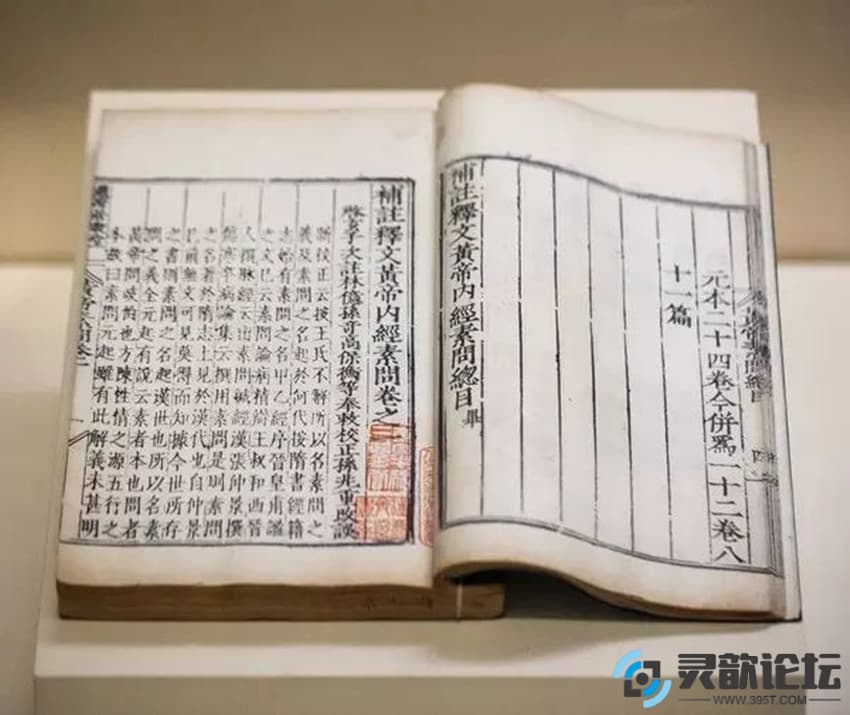 元本二十四卷今併爲一十二卷八
十一篇
補註釋文黃帝内經素問總目畢
補註釋文黃帝内經素問卷之一
啓玄子次註林億孫奇高保衡等奉敕校正孫兆重改誤
新校正云按王氏不解所以名素問之
義及素問之名起於何代按隋書經籍
志始有素問之名甲乙經序晉皇甫謐
之文已云素問論病精辨王叔和西晉
人撰脉經云出素問鍼經漢張仲景撰
傷寒卒病論集云撰用素問是則素問
之名著於隋志上見於漢代也自仲景
已前無文可見莫得而知據今世所存
之書則素問之名起漢世也所以名素
問之義全元起有說云素者本也問者
黃帝問岐伯也方陳性情之源五行之
本故曰素問元起雖有此解義未甚明
灵歆论坛
WWW.395T.COM